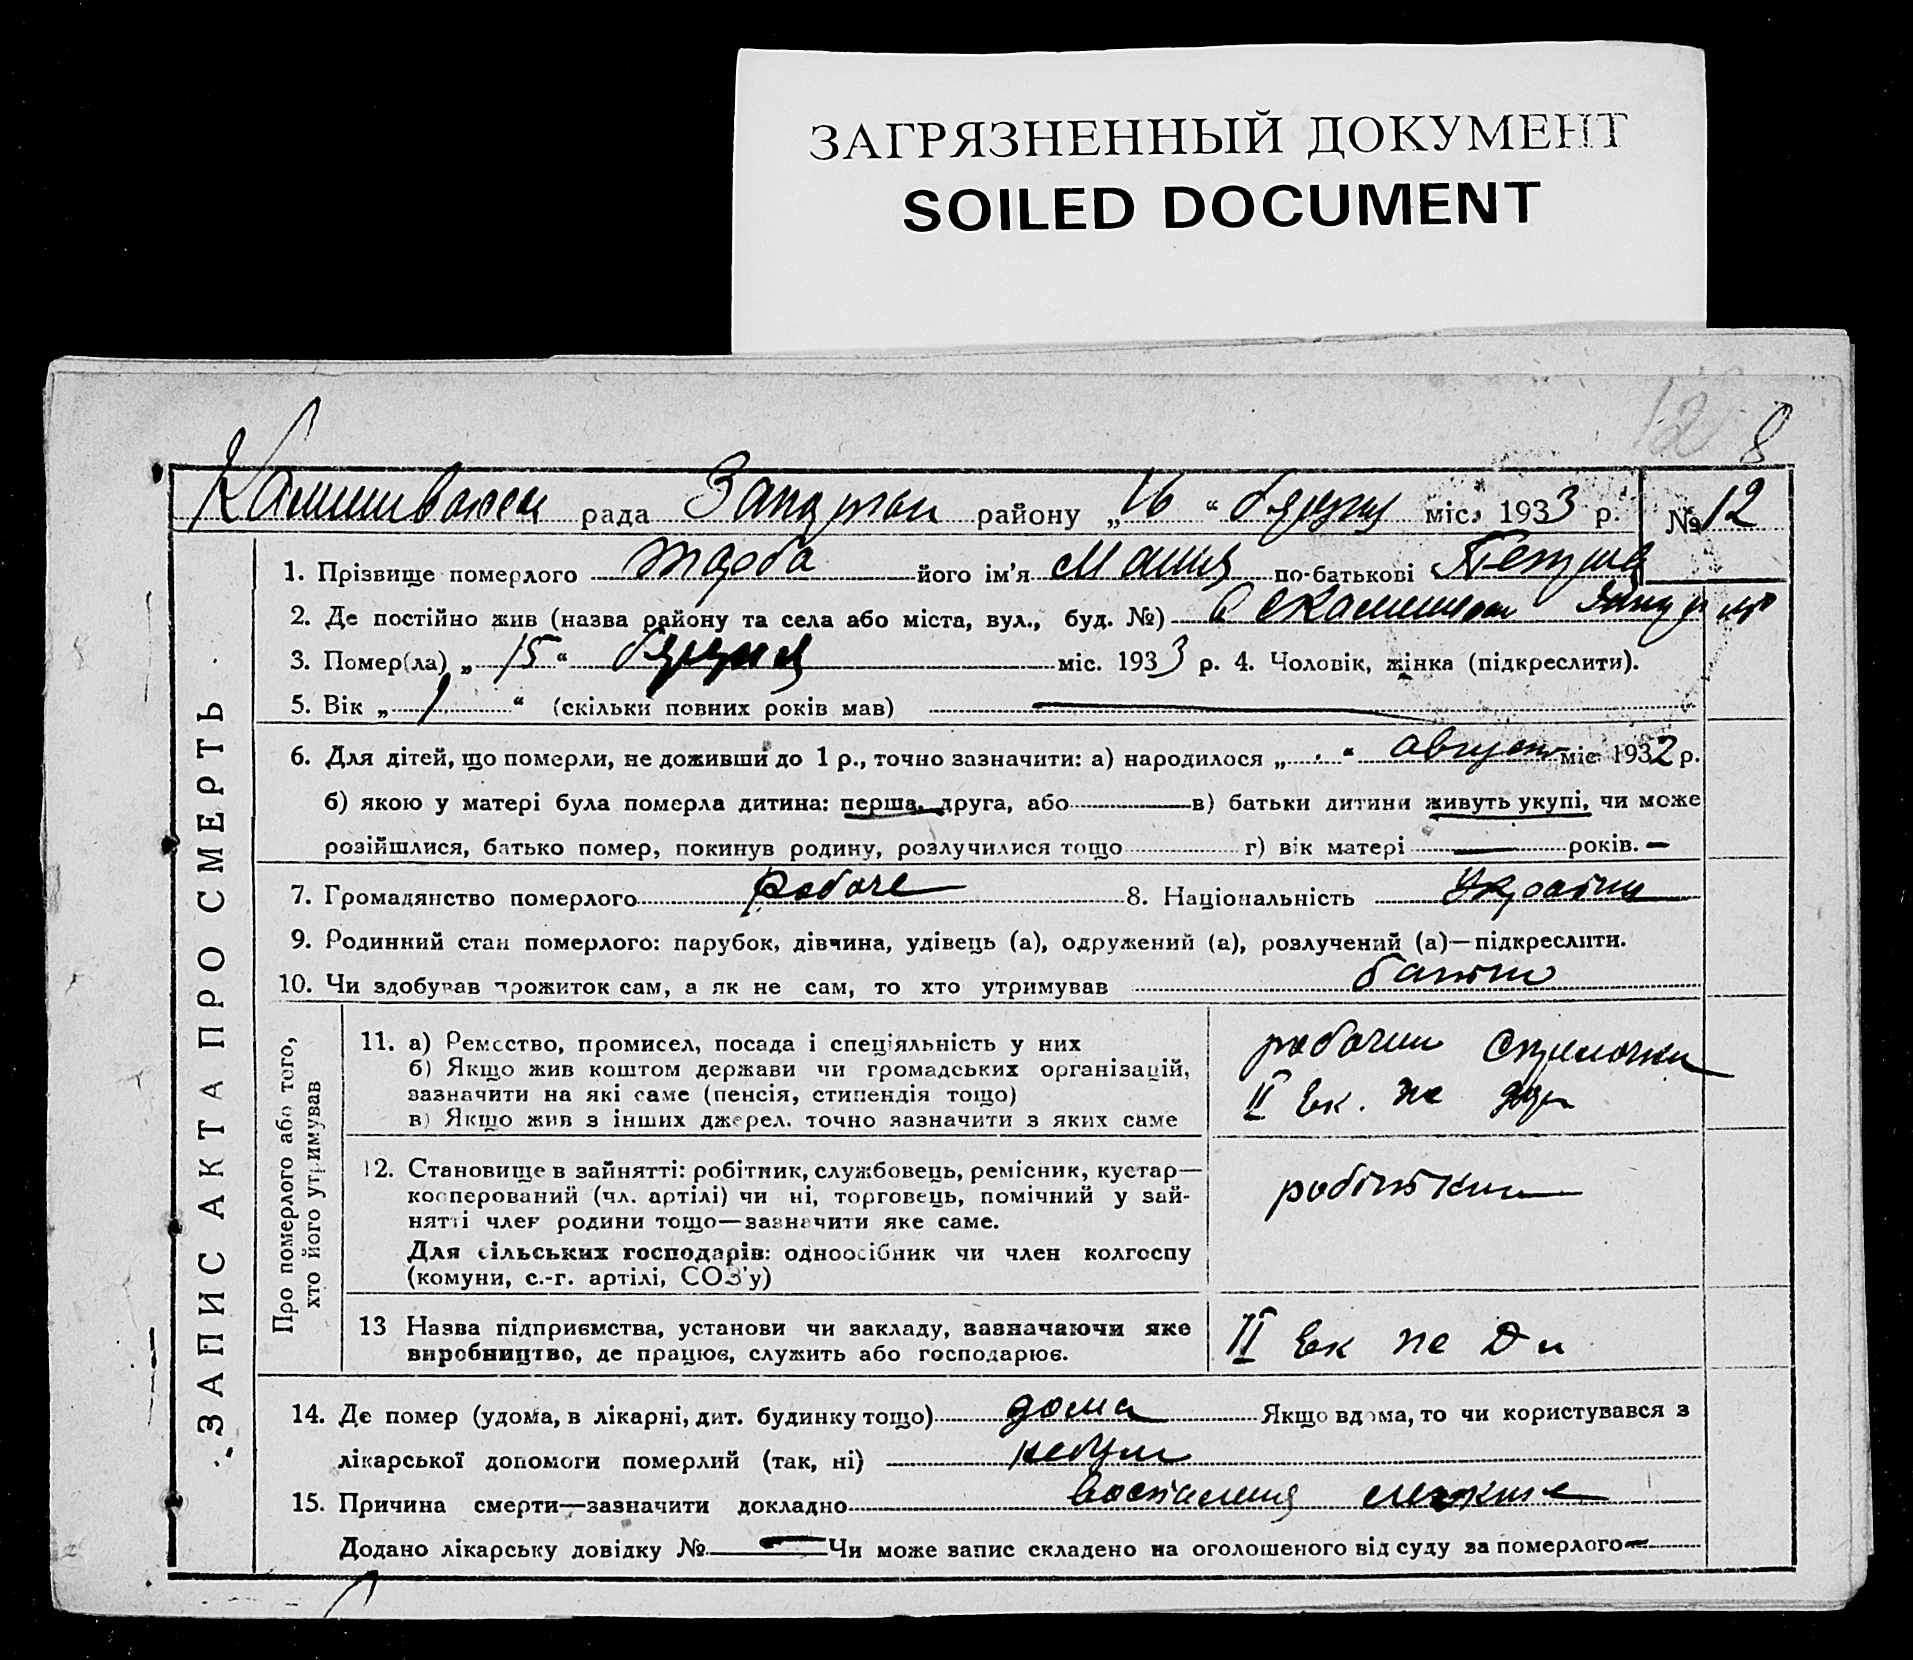 ЗАГРЯЗНЕННЫЙ ДОКУМЕНТ
SOILED DOCUMENT
12 8
рада району „16“ міс. 1933 р. № 12
ЗАПИС АКТА ПРО СМЕРТЬ
1. Прізвище померлого його ім'я по-батькові
2. Де постійно жив (назва району та села або міста, вул., буд. №)
3. Помер(ла) „15“ міс. 1933 р. 4. Чоловік, жінка (підкреслити).
5. Вік „ “ (скільки повних років мав)
6. Для дітей, що померли, не доживши до 1 р., точно зазначити: а) народилося „ “ август міс 1932 р.
б) якою у матері була померла дитина: перша, друга, або в) батьки дитини живуть укупі, чи може
розійшлися, батько помер, покинув родину, розлучилися тощо г) вік матері років. —
7. Громадянство померлого рабоче 8. Національність
9. Родинний стан померлого: парубок, дівчина, удівець (а), одружений (а), розлучений (а)—підкреслити.
10. Чи здобував прожиток сам, а як не сам, то хто утримував
Про померлого або того,
хто його утримував
11. а) Ремество, промисел, посада і спеціяльність у них
б) Якщо жив коштом держави чи громадських організацій,
зазначити на які саме (пенсія, стипендія тощо)
в) Якщо жив з інших джерел. точно зазначити з яких саме
II
12. Становище в зайнятті: робітник, службовець, ремісник, кустар—
косперований (чл. артілі) чи ні, торговець, помічний у зай-
нятті член родини тощо—зазначити яке саме.
Для сільських господарів: одноосібник чи член колгоспу
(комуни, с.-г. артілі, СОЗ'у)
13 Назва підприємства, установи чи закладу, зазначаючи яке
виробництво, де працює, служить або господарює.
II
14. Де помер (удома, в лікарні, дит. будинку тощо) дома Якщо вдома, то чи користувався з
лікарської допомоги померлий (так, ні)
15. Причина смерти—зазначити докладно
Додано лікарську довідку № — Чи може запис складено на оголошеного від суду за померлого —